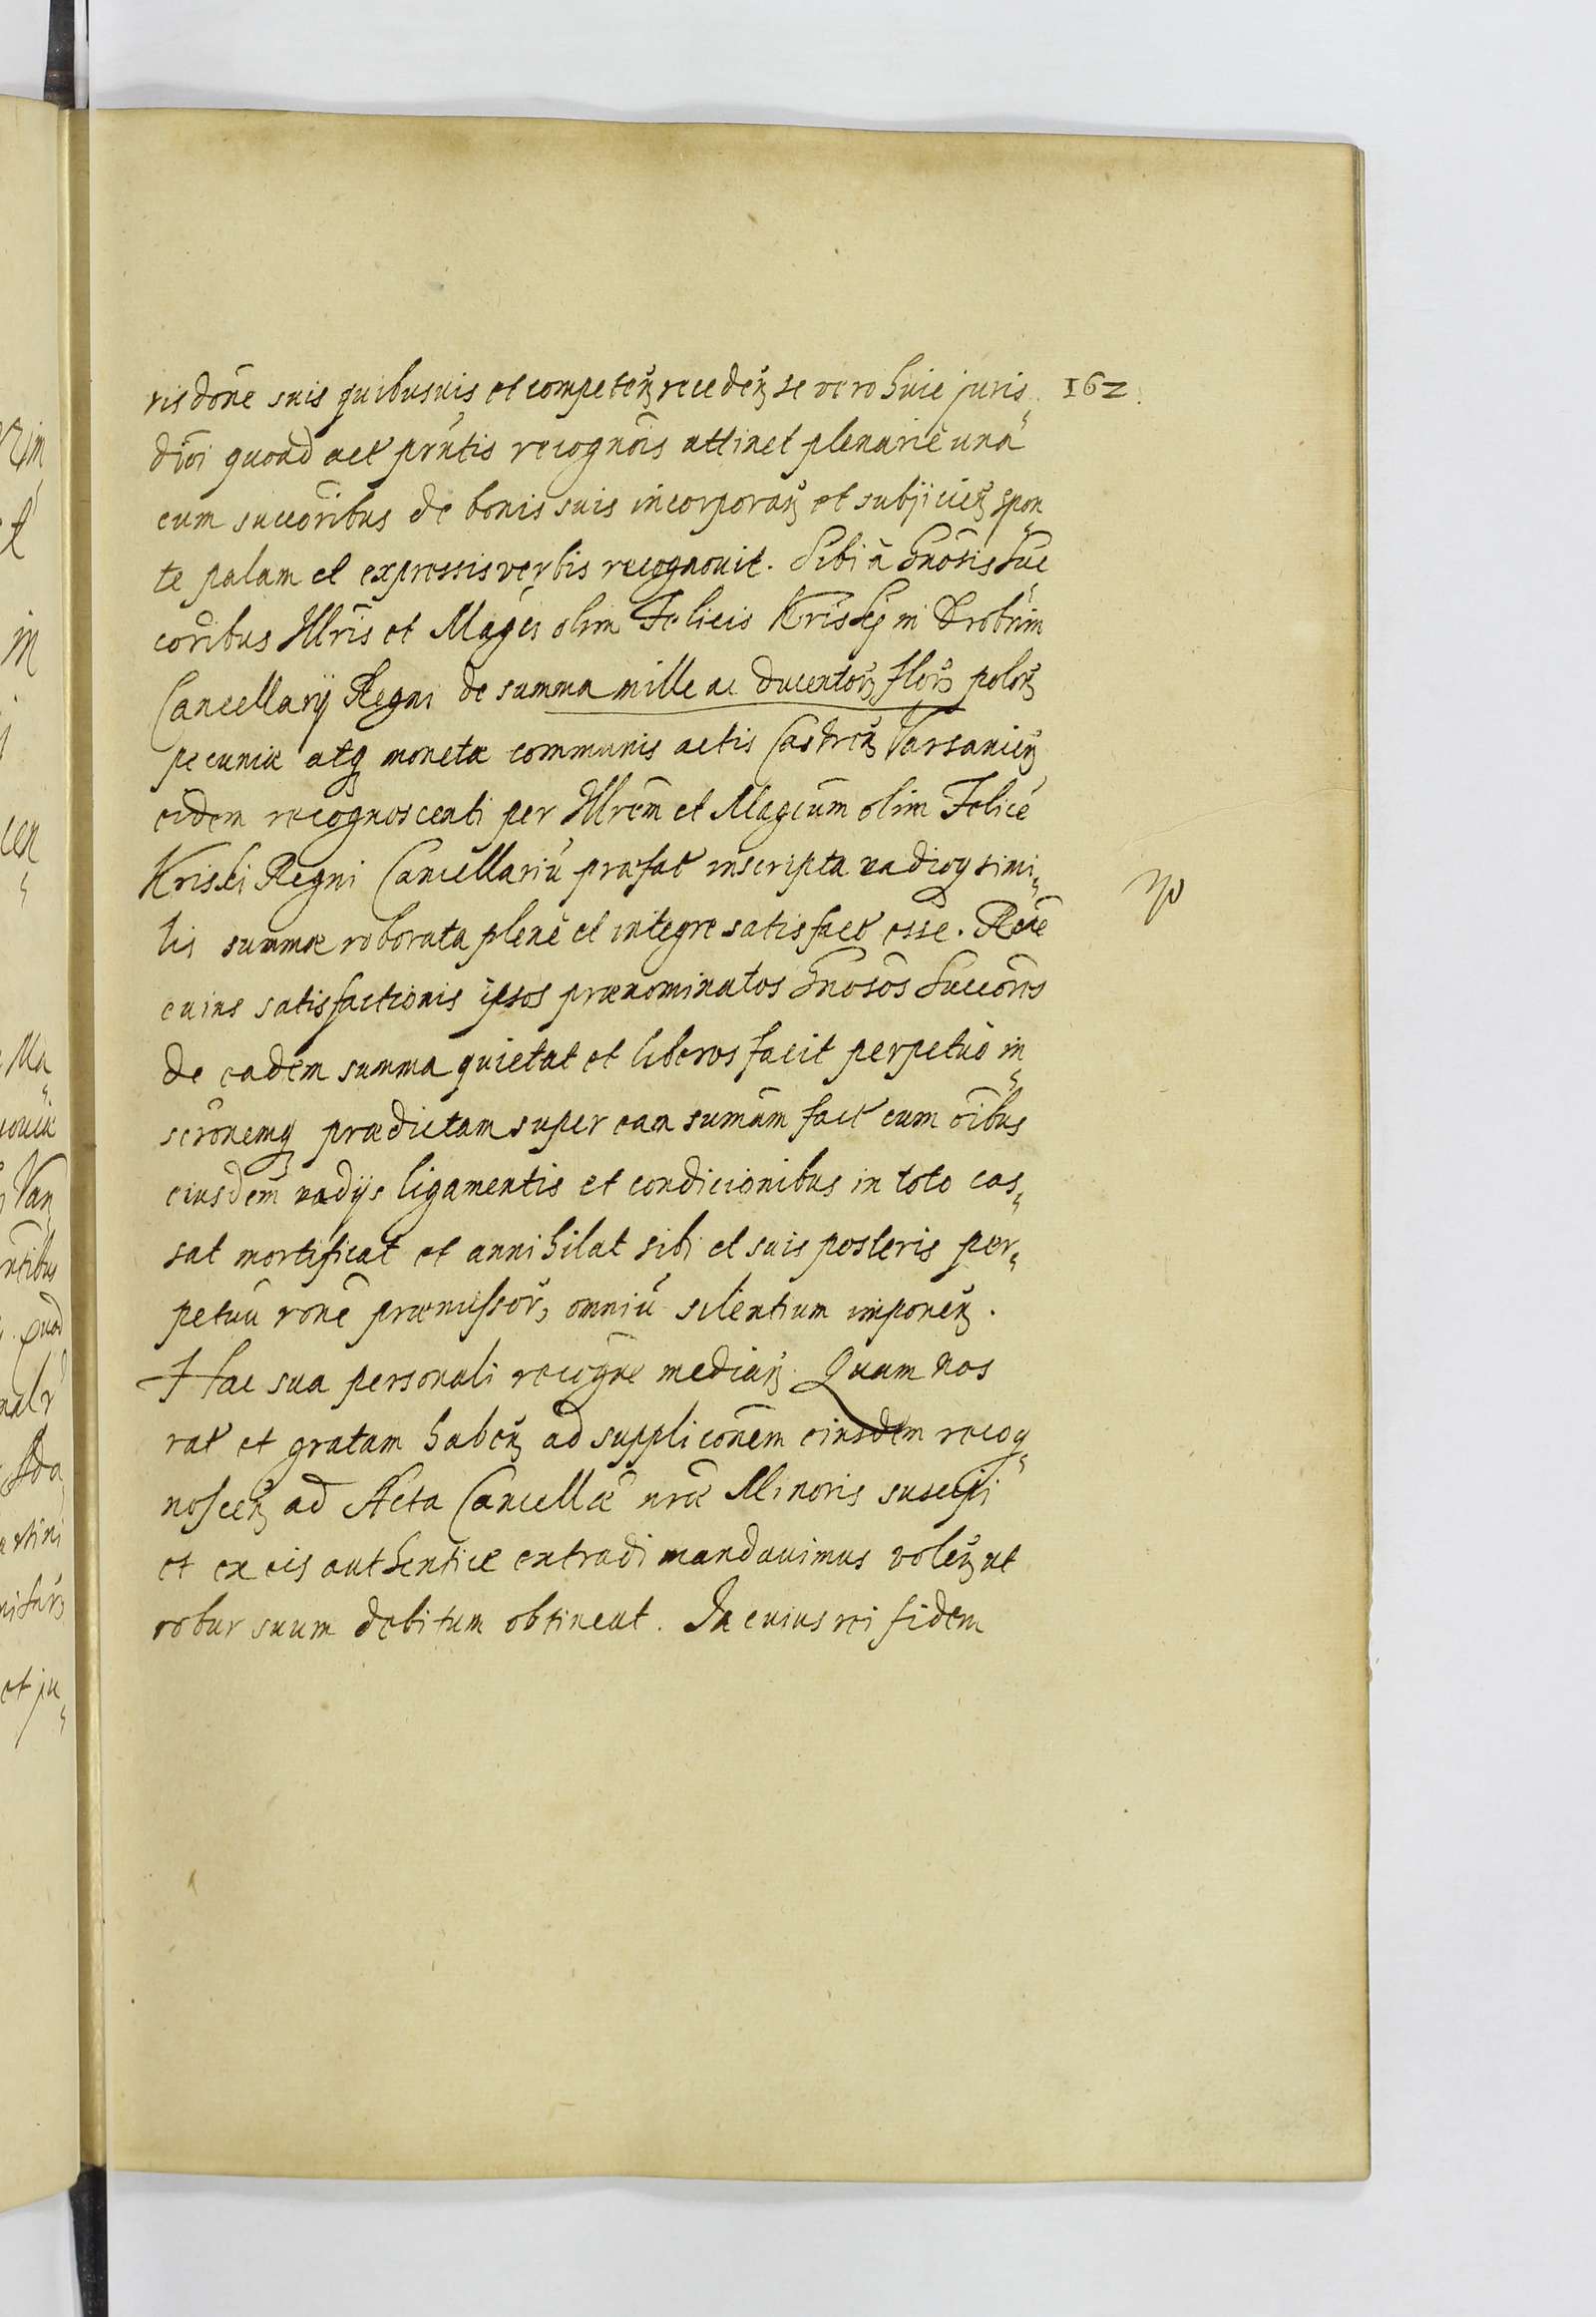 risdone suis quibusuis et competeñ recedeñ se vero huic juris„ 162.
dioi quoad act prñtis recognõis attinet plenariè unà
cum succoribus de bonis suis incorporañ et subjicieñ spon„
te palam et expressis verbis recognouit. Sibi à Gnosis Suc„
coribus Illris et Magci olim Felicis Kriski in Drobnin
Cancellarij Regni de summa mille ac ducentorũ florũ polorũ
pecuniæ atq̃ monetæ communis actis Castreñ Varsauieñ
eidem recognoscenti per Illrem et Magcum olim Felicẽ
Kriski Regni Cancellariũ præfat inscripta vadioq̃ simi„
lis summæ roborata plenè et integre satisfact esse. Rõe
cuius satisfactionis ipsos prænominatos Gnosos Succores
de eadem summa quietat et liberos facit perpetuò in„
scronemq̃ prædictam super eam sumam fact cum oibus
eiusdem vadijs ligamentis et condicionibus in toto cas„
sat mortificat et annihilat sibi et suis posteris per„
petuũ ronẽ præmissorũ omniũ silentium imponeñ.
Hac sua personali recogne mediañ. Quam nos
rat et gratam habeñ ad suppliconem eiusdem recog„
nosceñ ad Acta Cancellæ nræ Minoris suscipi
et ex eis authenticè extradi mandauimus voleñ ut
robur suum debitum obtineat. In cuius rei fidem